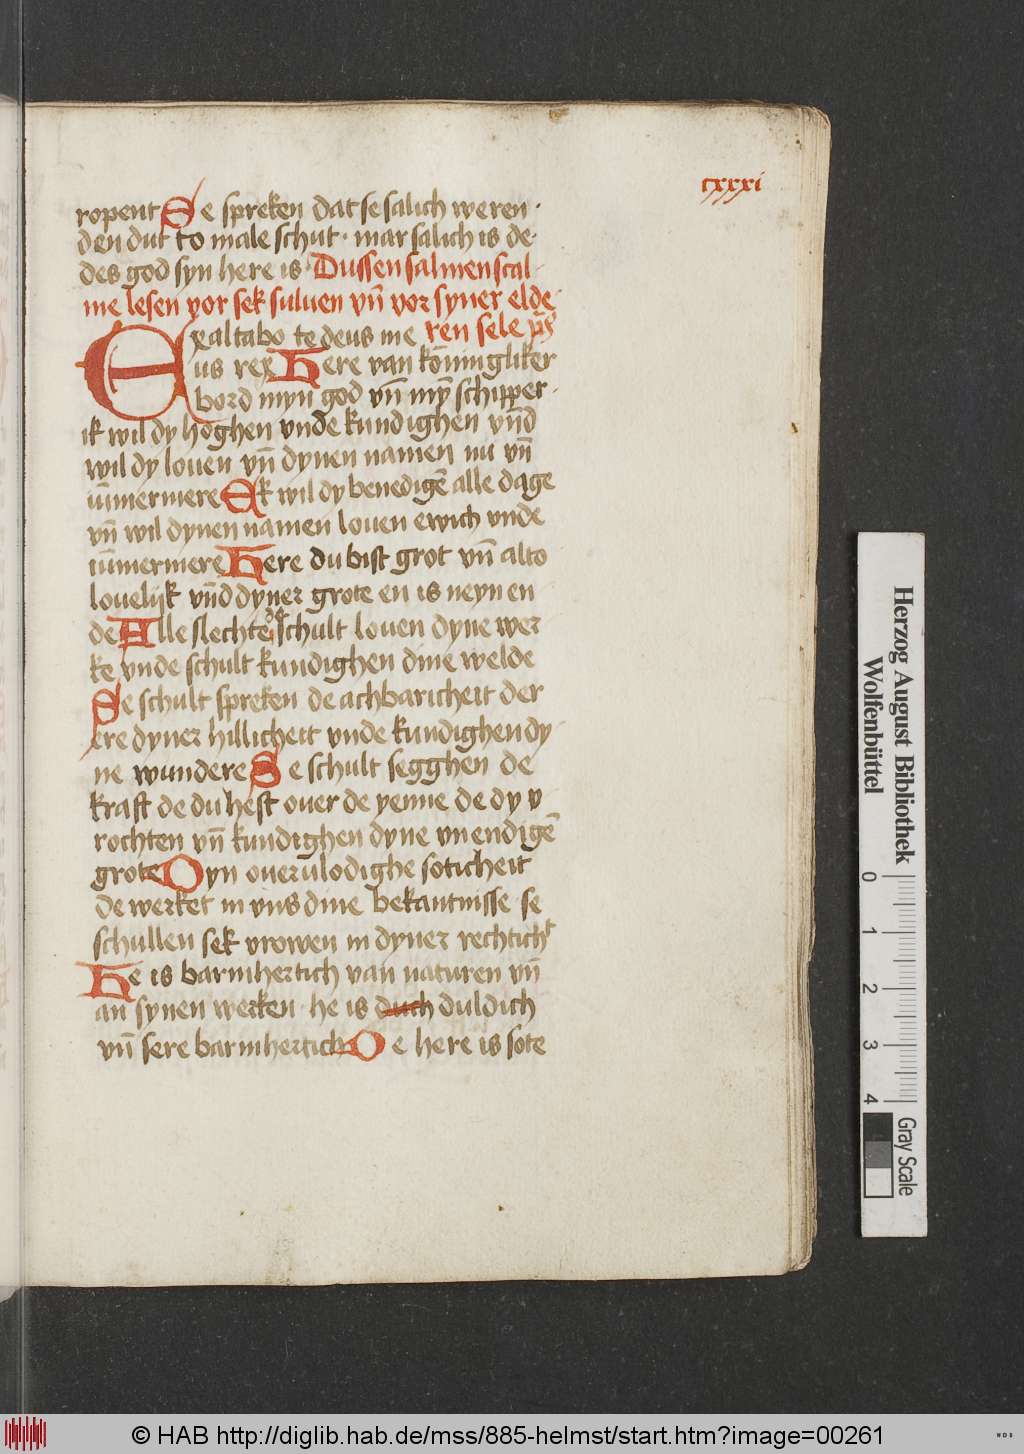 cxxxi
ropent Se spreken dat se salich weren ·
den dut to male schut · mar salich is de-
des god syn here is · Dussen salmen scal
me lesen vor sek suluen vn̄ vor syner elde
Exaltabo te deus me ren sele p̄s
us rex Here van koningliker
bord myn god vn̄ mȳ schipper ·
ik wil dy hoghen vnde kundighen vn̄d
wil dy louen vn̄ dynen namen nu vn̄
ūmermere Ek wil dy benedigē alle dage
vn̄ wil dynen namen louen ewich vnde
iūmermere Here du bist grot vn̄ alto
louelijk vn̄d dyner grote en is neyn en
de Alle slechte de schult louen dyne wer
ke vnde schult kundighen dine welde
Se schult spreken de achbaricheit der
ere dyner hillicheit vnde kundighen dy
ne wundere Se schult segghen de
kraft de du hest ouer de yenne de dy v
rochten vn̄ kundighen dyne vnendigē
grote Dyn ouerulodighe soticheit
de werket in vns dine bekantnisse se
schullen sek vrowen in dyner rechtich
He is barmhertich van naturen vn̄
an synen werken · he is duch duldich
vn̄ sere barmhertich De here is sote
Herzog August Bibliothek
Wolfenbüttel
0 1 2 3 4
Gray Scale
© HAB http://diglib.hab.de/mss/885-helmst/start.htm?image=00261